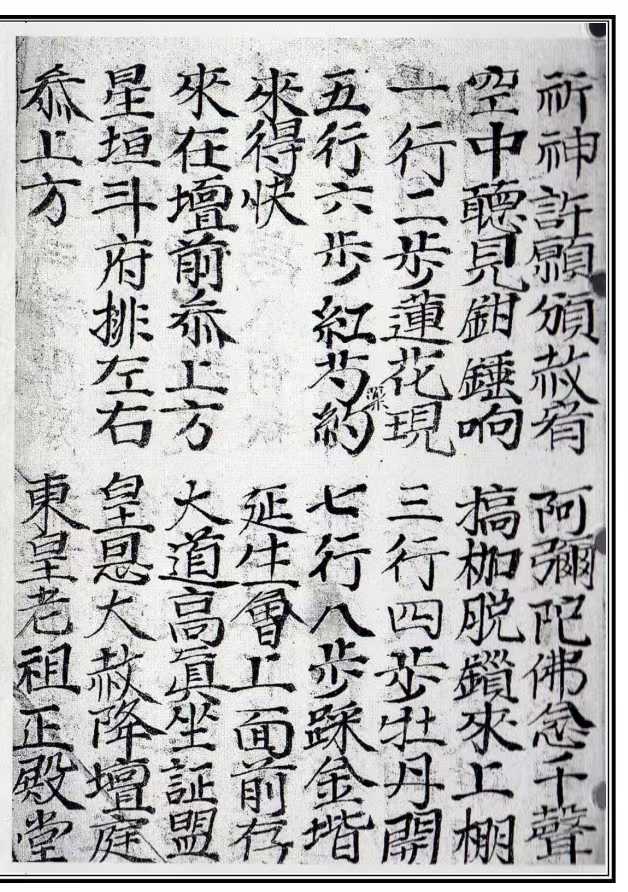 祈神許願頒赦宥 阿彌陀佛念千聲
空中聽見鉗錘响 搞枷脱鎖來上棚
一行二歩蓮花現 三行四歩牡丹開
五行六歩紅芍約藥 七行八歩踩金堦
來得快 延生會上面前存
來在壇前叅上方 大道高真坐証盟
星垣斗府排左右 皇恩大赦降壇庭
叅上方 東皇老祖正殿堂